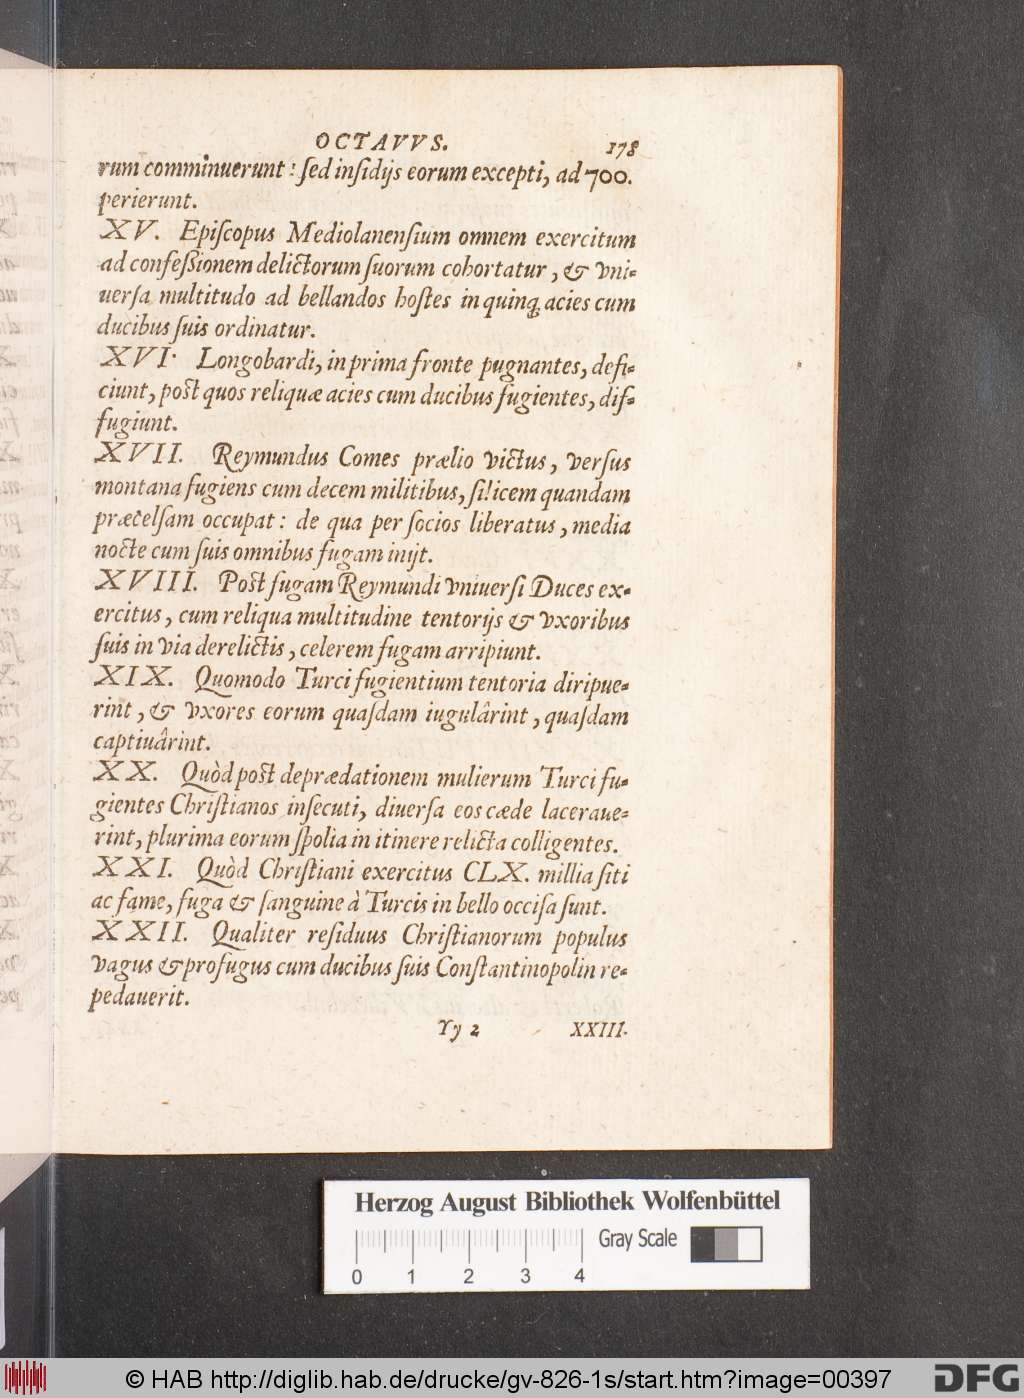 OCTAVVS. 178
rum comminuerunt: ſed inſidijs eorum excepti, ad 700.
perierunt.
XV. Epiſcopus Mediolanenſium omnem exercitum
ad confeſsionem delictorum ſuorum cohortatur, & vni-
uerſa multitudo ad bellandos hoſtes in quinq; acies cum
ducibus ſuis ordinatur.
XVI. Longobardi, in prima fronte pugnantes, defi-
ciunt, poſt quos reliquæ acies cum ducibus fugientes, dif-
fugiunt.
XVII. Reymundus Comes prælio victus, verſus
montana fugiens cum decem militibus, ſilicem quandam
præcelſam occupat: de qua per ſocios liberatus, media
nocte cum ſuis omnibus fugam inijt.
XVIII. Poſt fugam Reymundi vniuerſi Duces ex-
ercitus, cum reliqua multitudine tentorijs & vxoribus
ſuis in via derelictis, celerem fugam arripiunt.
XIX. Quomodo Turci fugientium tentoria diripue-
rint, & vxores eorum quaſdam iugulârint, quaſdam
captiuârint.
XX. Quòd poſt deprædationem mulierum Turci fu-
gientes Chriſtianos inſecuti, diuerſa eos cæde laceraue-
rint, plurima eorum ſpolia in itinere relicta colligentes.
XXI. Quòd Chriſtiani exercitus CLX. millia ſiti
ac fame, fuga & ſanguine à Turcis in bello occiſa ſunt.
XXII. Qualiter reſiduus Chriſtianorum populus
vagus & profugus cum ducibus ſuis Conſtantinopolin re-
pedauerit.
Yy 2 XXIII.
Herzog August Bibliothek Wolfenbüttel
Gray Scale
0 1 2 3 4
© HAB http://diglib.hab.de/drucke/gv-826-1s/start.htm?image=00397
DFG